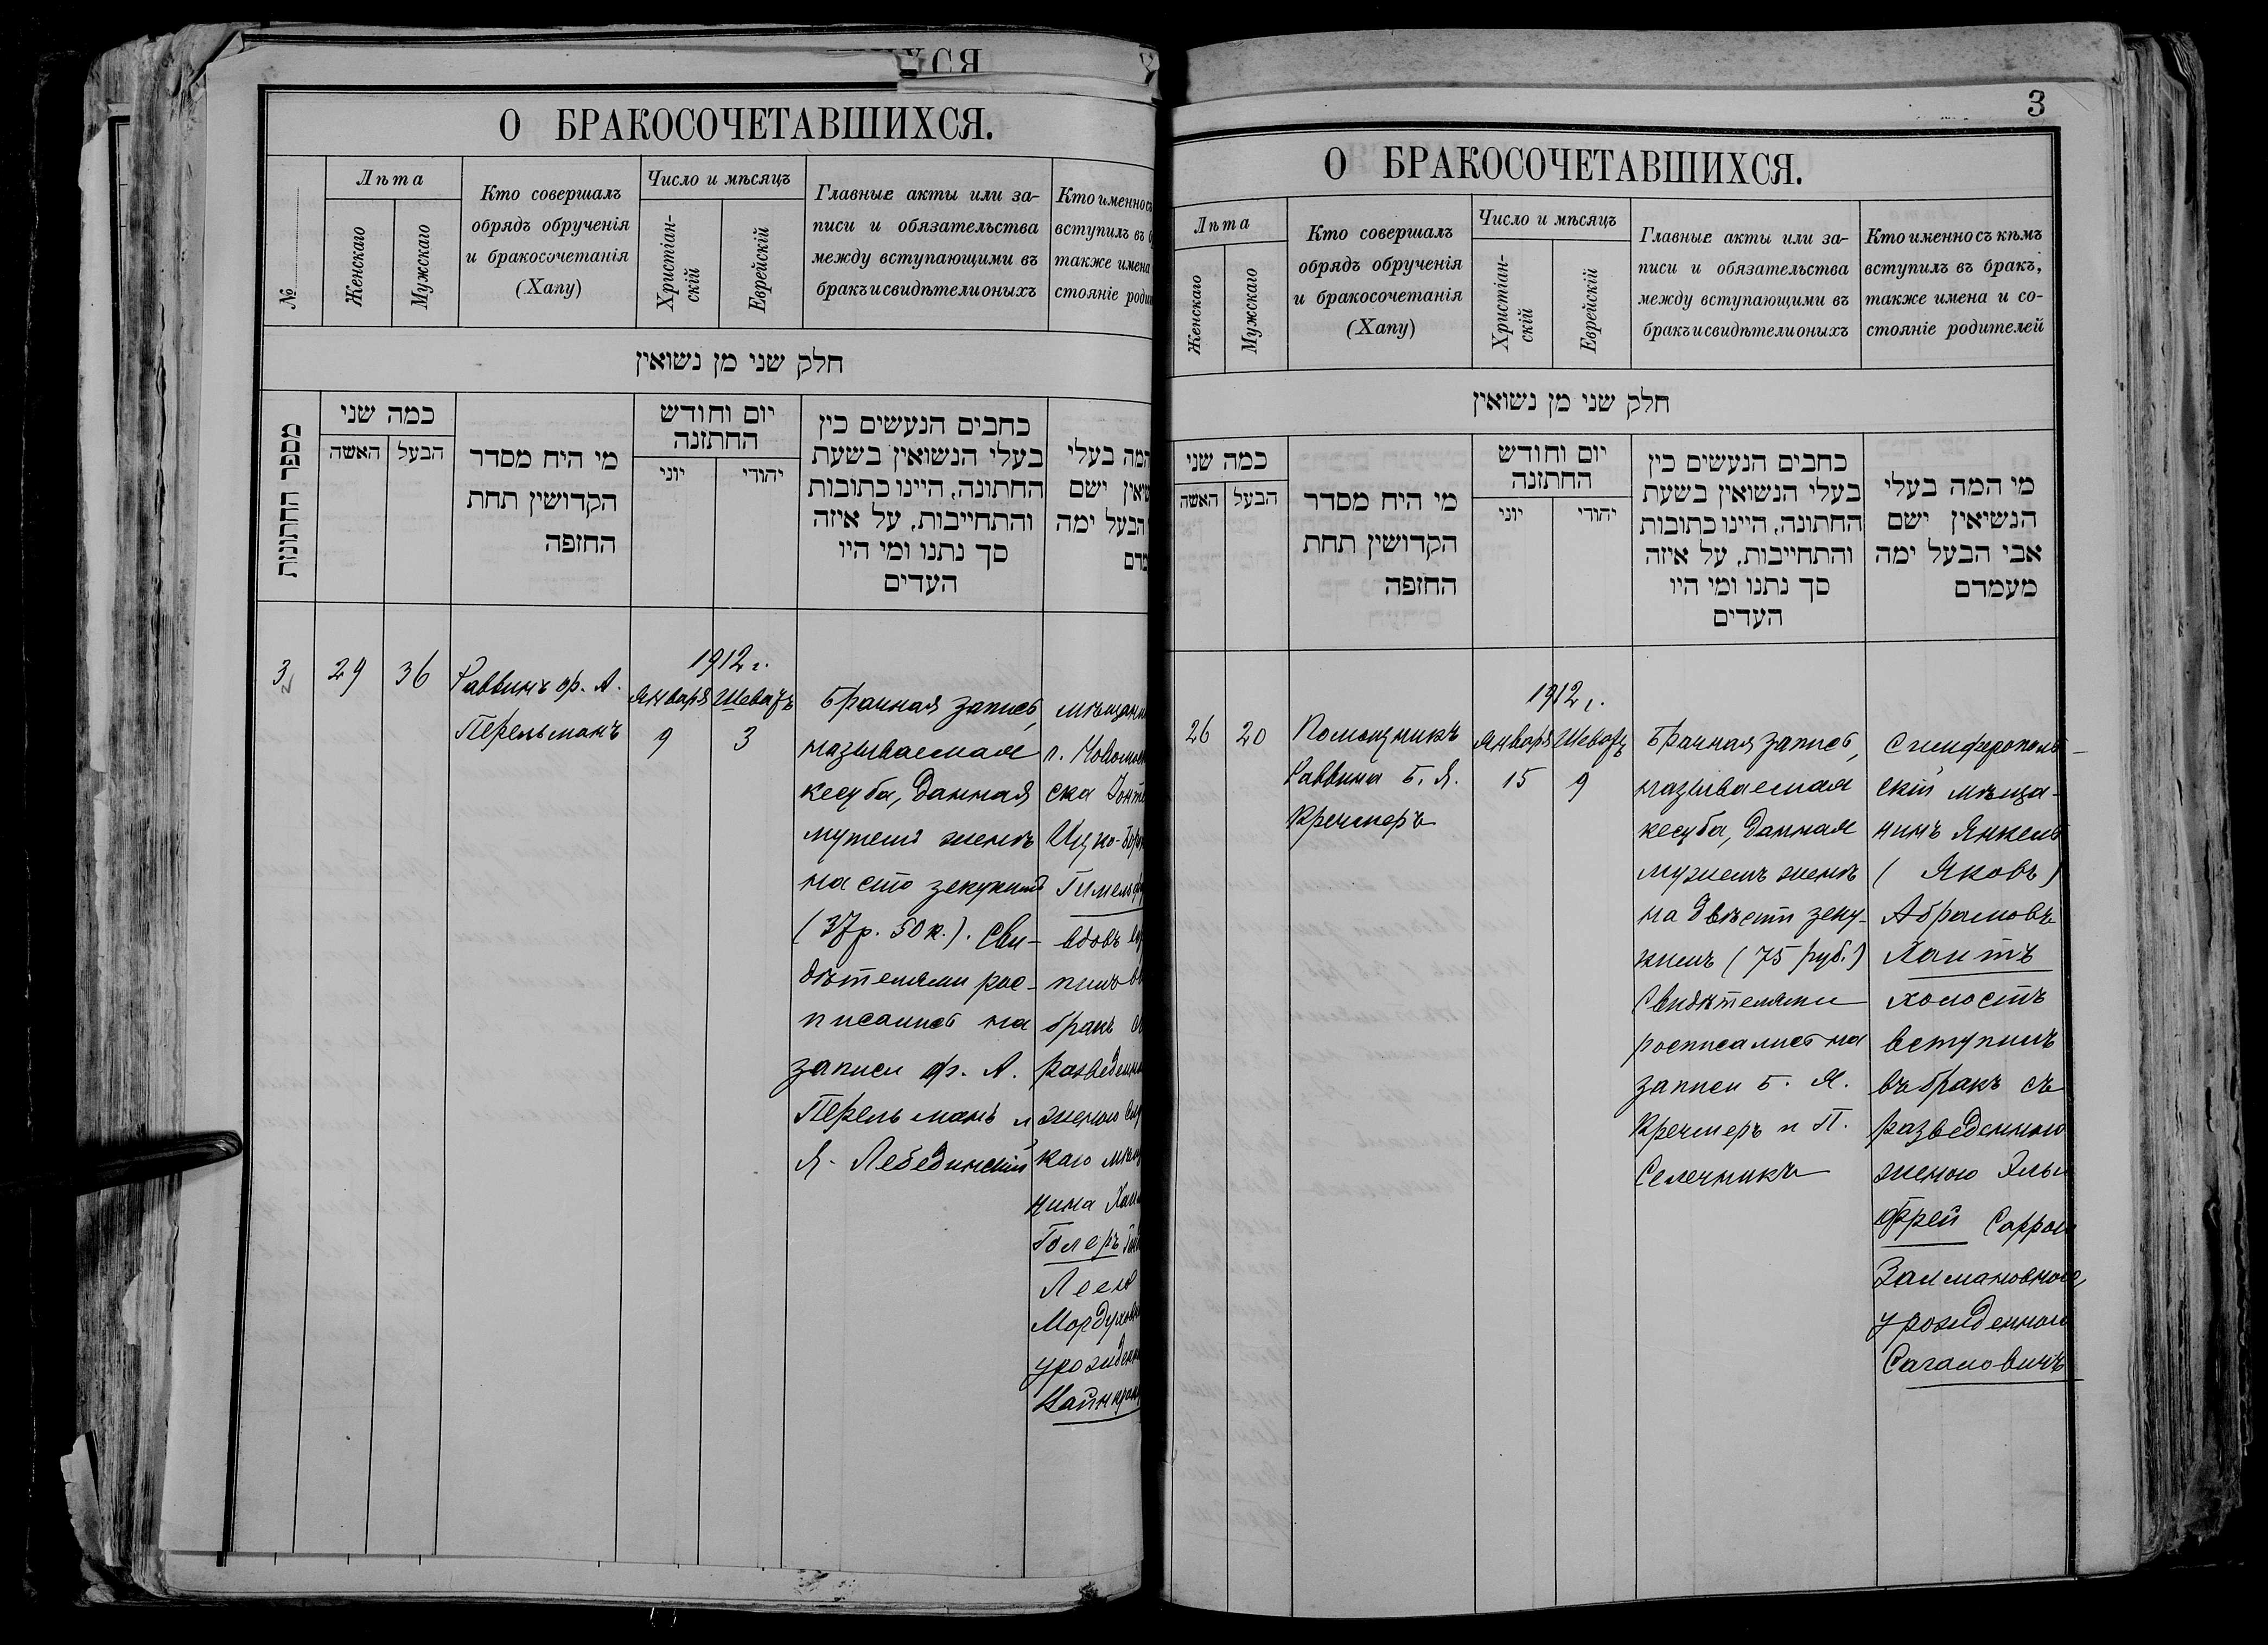 О БРАКОСОЧЕТАВШИХСЯ.
№
Лѣта
Женскаго
Мужскаго
Кто совершалъ
обрядъ обрученія
и бракосочетанія
(Хапу)
Число и мѣсяцъ
Христіан-
скій
Еврейскій
Главные акты или за-
писи и обязательства
между вступающими въ
бракъ и свидѣтели оныхъ
Кто именно съ
вступилъ въ
также имена
стояніе
חלק שני מן נשואין
מספר החתונות
כמה שני
האשה
הבעל
מי היח מסדר
הקדושין תחת
החופה
יום וחודש
החתזנה
יוני
יהודי
כחבים הנעשים כין
בעלי הנשואין בשעת
החתונה, היינו כתובות
והתחייבות, על איזה
סך נתנו ומי היו
העדים
המה בעלי
ישם
הבעל ימה
3
29
36
Раввинъ Ф. А.
Перельманъ
1912 г.
Января
9
Шеватъ
3
Брачная запись,
называемая
кесуба, данная
мужемъ женѣ
на сто зекукимъ
(37 р. 50 к.). Сви-
дѣтелями рос-
писались на
записи Ф. А.
Перельманъ и
Я. Лебединскій
г.
ска
вдовъ
бракъ
женою
каго
нина
Голеръ
Леею
3
О БРАКОСОЧЕТАВШИХСЯ.
Лѣта
Женскаго
Мужскаго
Кто совершалъ
обрядъ обрученія
и бракосочетанія
(Хапу)
Число и мѣсяцъ
Христіан-
скій
Еврейскій
Главные акты или за-
писи и обязательства
между вступающими въ
бракъ и свидѣтели оныхъ
Кто именно съ кѣмъ
вступилъ въ бракъ,
также имена и со-
стояніе родителей
חלק שני מן נשואין
כמה שני
האשה
הבעל
מי היח מסדר
הקדושין תחת
החופה
יום וחודש
החתזנה
יוני
יהודי
כחבים הנעשים כין
בעלי הנשואין בשעת
החתונה, היינו כתובות
והתחייבות, על איזה
סך נתנו ומי היו
העדים
מי המה בעלי
הנשיאין ישם
אבי הבעל ימה
מעמדם
26
20
Помощникъ
Раввина Б. Я.
Кречмеръ
1912 г.
Января
15
Шеватъ
9
Брачная запись,
называемая
кесуба, данная
мужемъ женѣ
на двѣсти зеку-
кимъ (75 руб.)
Свидѣтелями
росписались на
записи Б. Я.
Кречмеръ и П.
Селечникъ
Симферополь-
скій мѣща-
нинъ Янкель
(Яковъ)
Абрамовъ
Лантъ
холостъ
вступилъ
въ бракъ съ
разведенною
женою Эль
Фрей Саррою
Залмановною
урожденною
Сагаловичъ